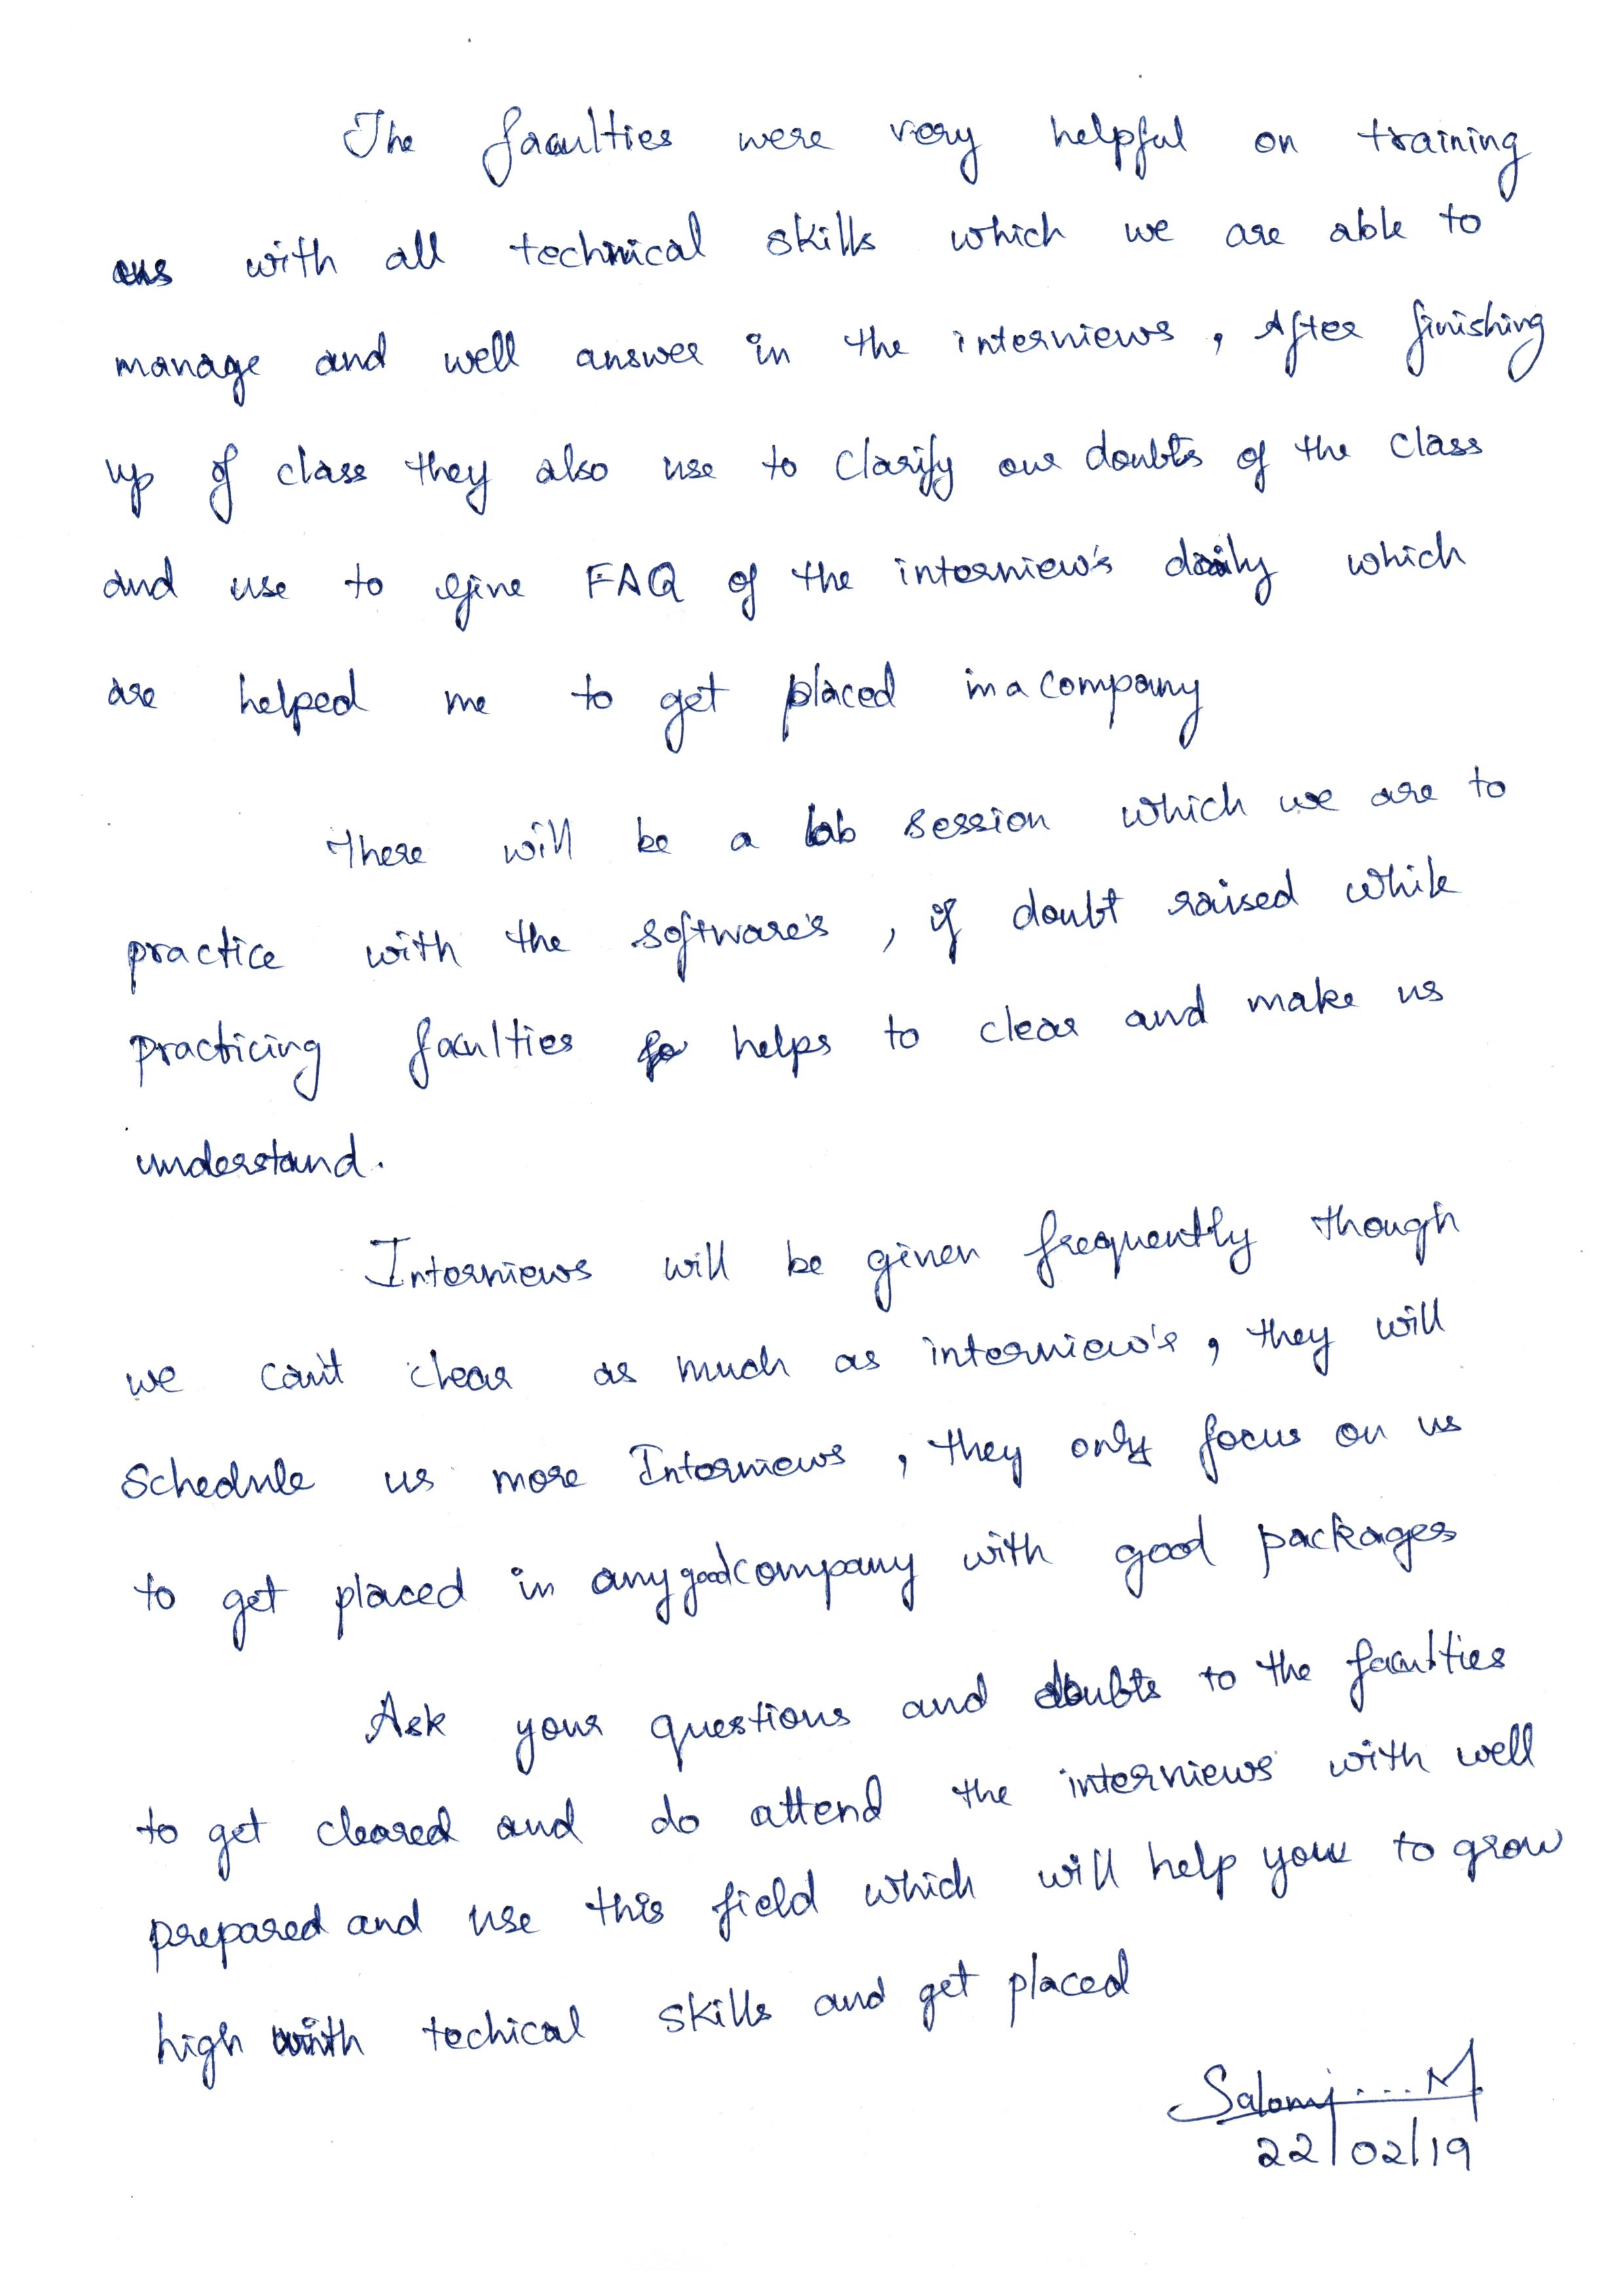 The faculties were very helpful on training
us with all technical skills which we are able to
manage and well answer in the interviews, After finishing
up of class they also use to clarify our doubts of the class
and use to give FAQ of the interview's daily which
are helped me to get placed in a company
There will be a lab session which we are to
practice with the software's, if doubt raised while
practicing faculties helps to clear and make us
understand.
Interviews will be given frequently though
we can't clear as much as interview's, they will
Schedule us more Interviews, they only focus on us
to get placed in any good company with good packages
Ask your questions and doubts to the faculties
to get cleared and do attend the interviews with well
prepared and use this field which will help you to grow
high with techical skills and get placed
Salomi...M
22/02/19